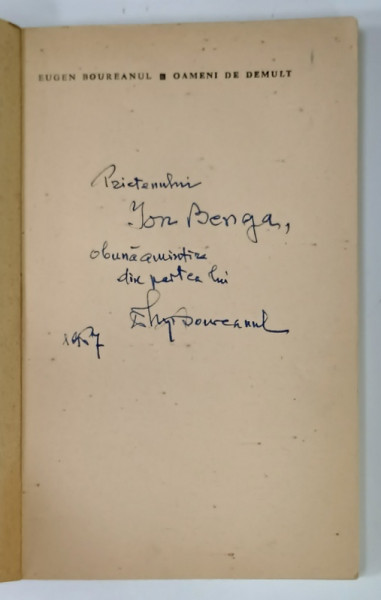 EUGEN BOUREANUL ▪ OAMENI DE DEMULT
Prietenului
Ion Benga,
o bună amintire
din partea lui
Eug Boureanul